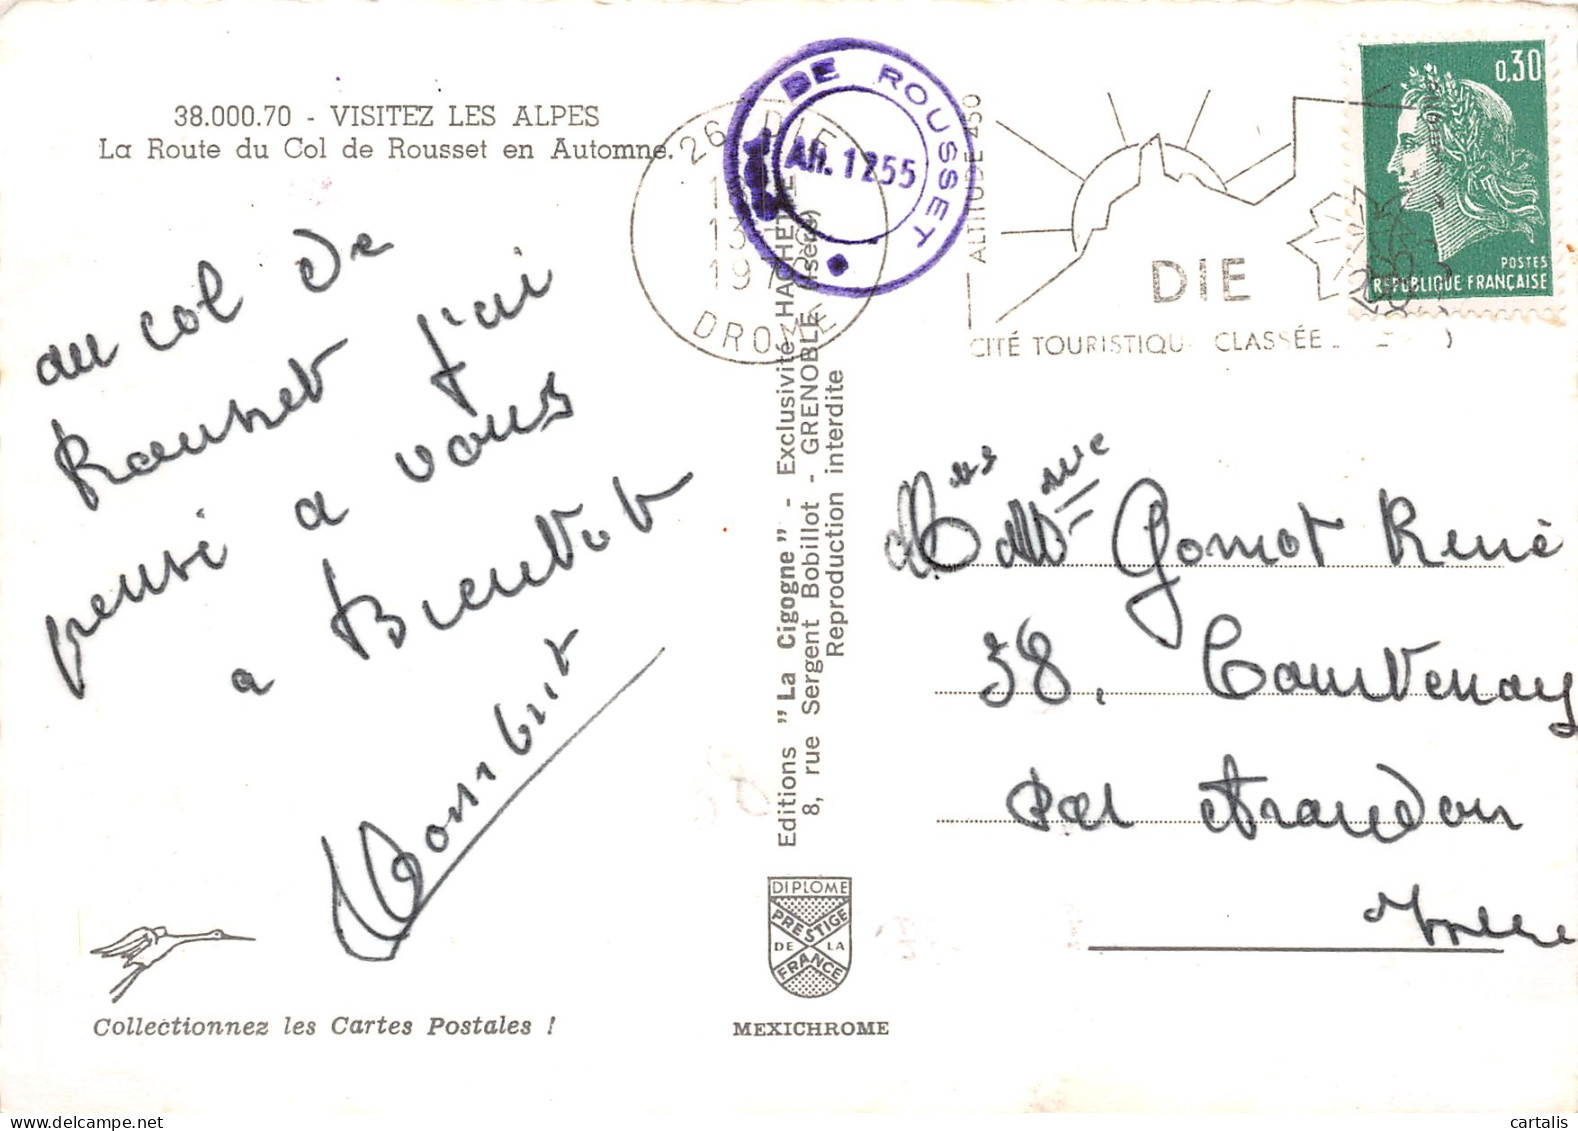 38.000.70 - VISITEZ LES ALPES
La Route du Col de Rousset en Automne.
au col de
Rousset j'ai
pensé a vous
a Bientot
DE ROUSSET
Alt. 1255
26 DIE
13
197
DROME
ALTITUDE 450
DIE
CITÉ TOURISTIQU CLASSÉE
0,30
POSTES
REPUBLIQUE FRANÇAISE
Editions "La Cigogne" - Exclusivité HACHETTE
8, rue Sergent Bobillot - GRENOBLE (Isère)
Reproduction interdite
Gomot René
38, Courtenay
par Arandon
Isère
DIPLOME
PRESTIGE
DE LA
FRANCE
MEXICHROME
Collectionnez les Cartes Postales !
cartalis delcampe.net